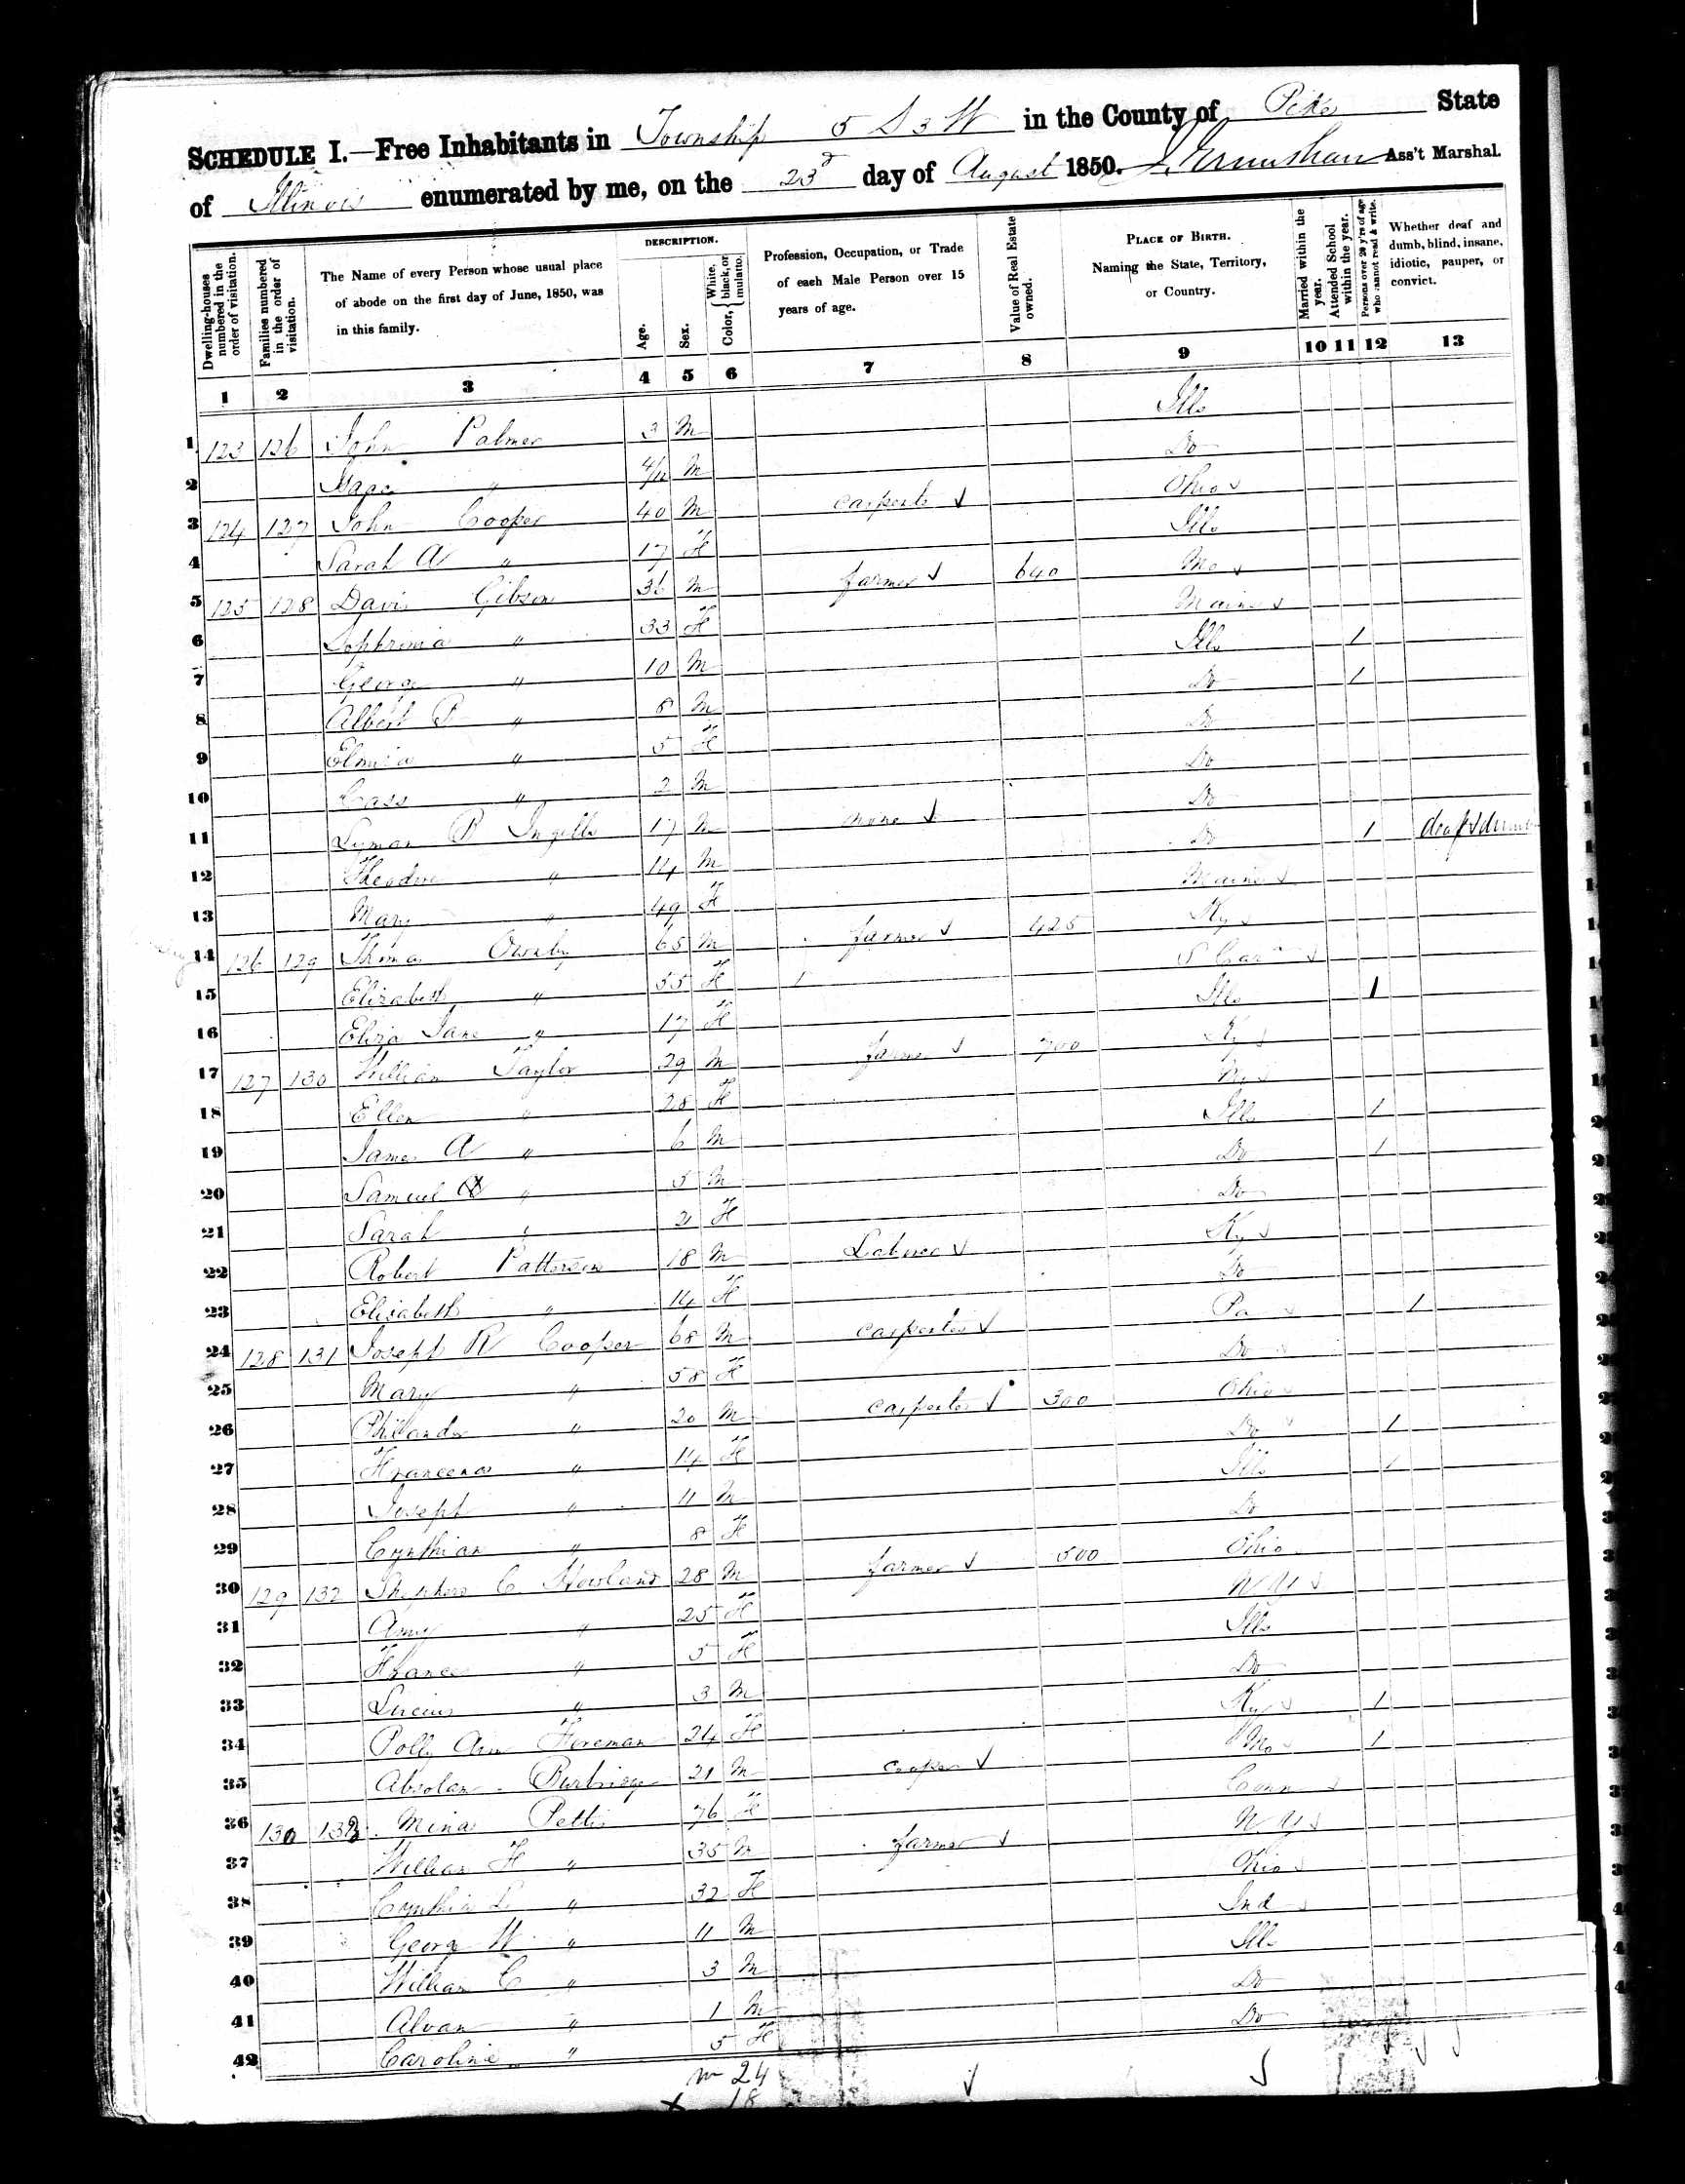 SCHEDULE I.—Free Inhabitants in Township 5 S 3 W in the County of Pike State
of Illinois enumerated by me, on the 23d day of August 1850. Ass't Marshal.
Dwelling-houses numbered in the order of visitation.
Families numbered in the order of visitation.
The Name of every Person whose usual place of abode on the first day of June, 1850, was in this family.
DESCRIPTION.
Age.
Sex.
Color, { White, black, or mulatto.
Profession, Occupation, or Trade of each Male Person over 15 years of age.
Value of Real Estate owned.
PLACE OF BIRTH. Naming the State, Territory, or Country.
Married within the year.
Attended School within the year.
Persons over 20 y'rs of age who cannot read & write.
Whether deaf and dumb, blind, insane, idiotic, pauper, or convict.
1 2 3 4 5 6 7 8 9 10 11 12 13
1 123 126 John Palmer 3 M Ills
2 " M Do
3 124 127 John Cooper 40 M carpenter Ohio
4 Sarah A " 17 F Ills
5 125 128 Davis Gibson 36 M farmer 640 Mo
6 Sophronia " 33 F Maine
7 George " 10 M Ills 1
8 Albert P " 8 M Do 1
9 Elmira " 5 F Do
10 Cass " 2 M Do
11 Lyman B Ingells 17 M none Do
12 Theodore " 14 M Do 1 deaf & dumb
13 Mary " 49 F Maine
14 126 129 Thomas Ownby 65 M farmer 425 Ky
15 Elizabeth " 55 F S Car
16 Eliza Jane " 17 F Ills 1
17 127 130 William Taylor 29 M farmer 700 Ky
18 Ellen " 28 F
19 James A " 6 M Ills 1
20 Samuel " 5 M Do 1
21 Sarah " 2 F Do
22 Robert Patterson 18 M Laborer Ky
23 Elizabeth " 14 F Do
24 128 131 Joseph R Cooper 68 M carpenter Pa 1
25 Mary " 58 F Do
26 Philander " 20 M carpenter 300 Ohio
27 Franeena " 14 F Do 1
28 Joseph " 11 M Ills 1
29 Cynthian " 8 F Do
30 129 132 Shephero C. Howland 28 M farmer 500 Ohio
31 Amy " 25 F N Y
32 Frances " 5 F Ills
33 Lucius " 3 M Do
34 Polly Ann Foreman 24 F Ky 1
35 Absolan Burbridge 21 M cooper Mo 1
36 130 133 Mina Pettis 76 F Conn
37 William H " 35 M farmer N Y
38 Cynthia L " 32 F Ohio
39 George W " 11 M Ind
40 William C " 3 M Ills
41 Alvan " 1 M Do
42 Caroline " 5 F Do
m 24
18